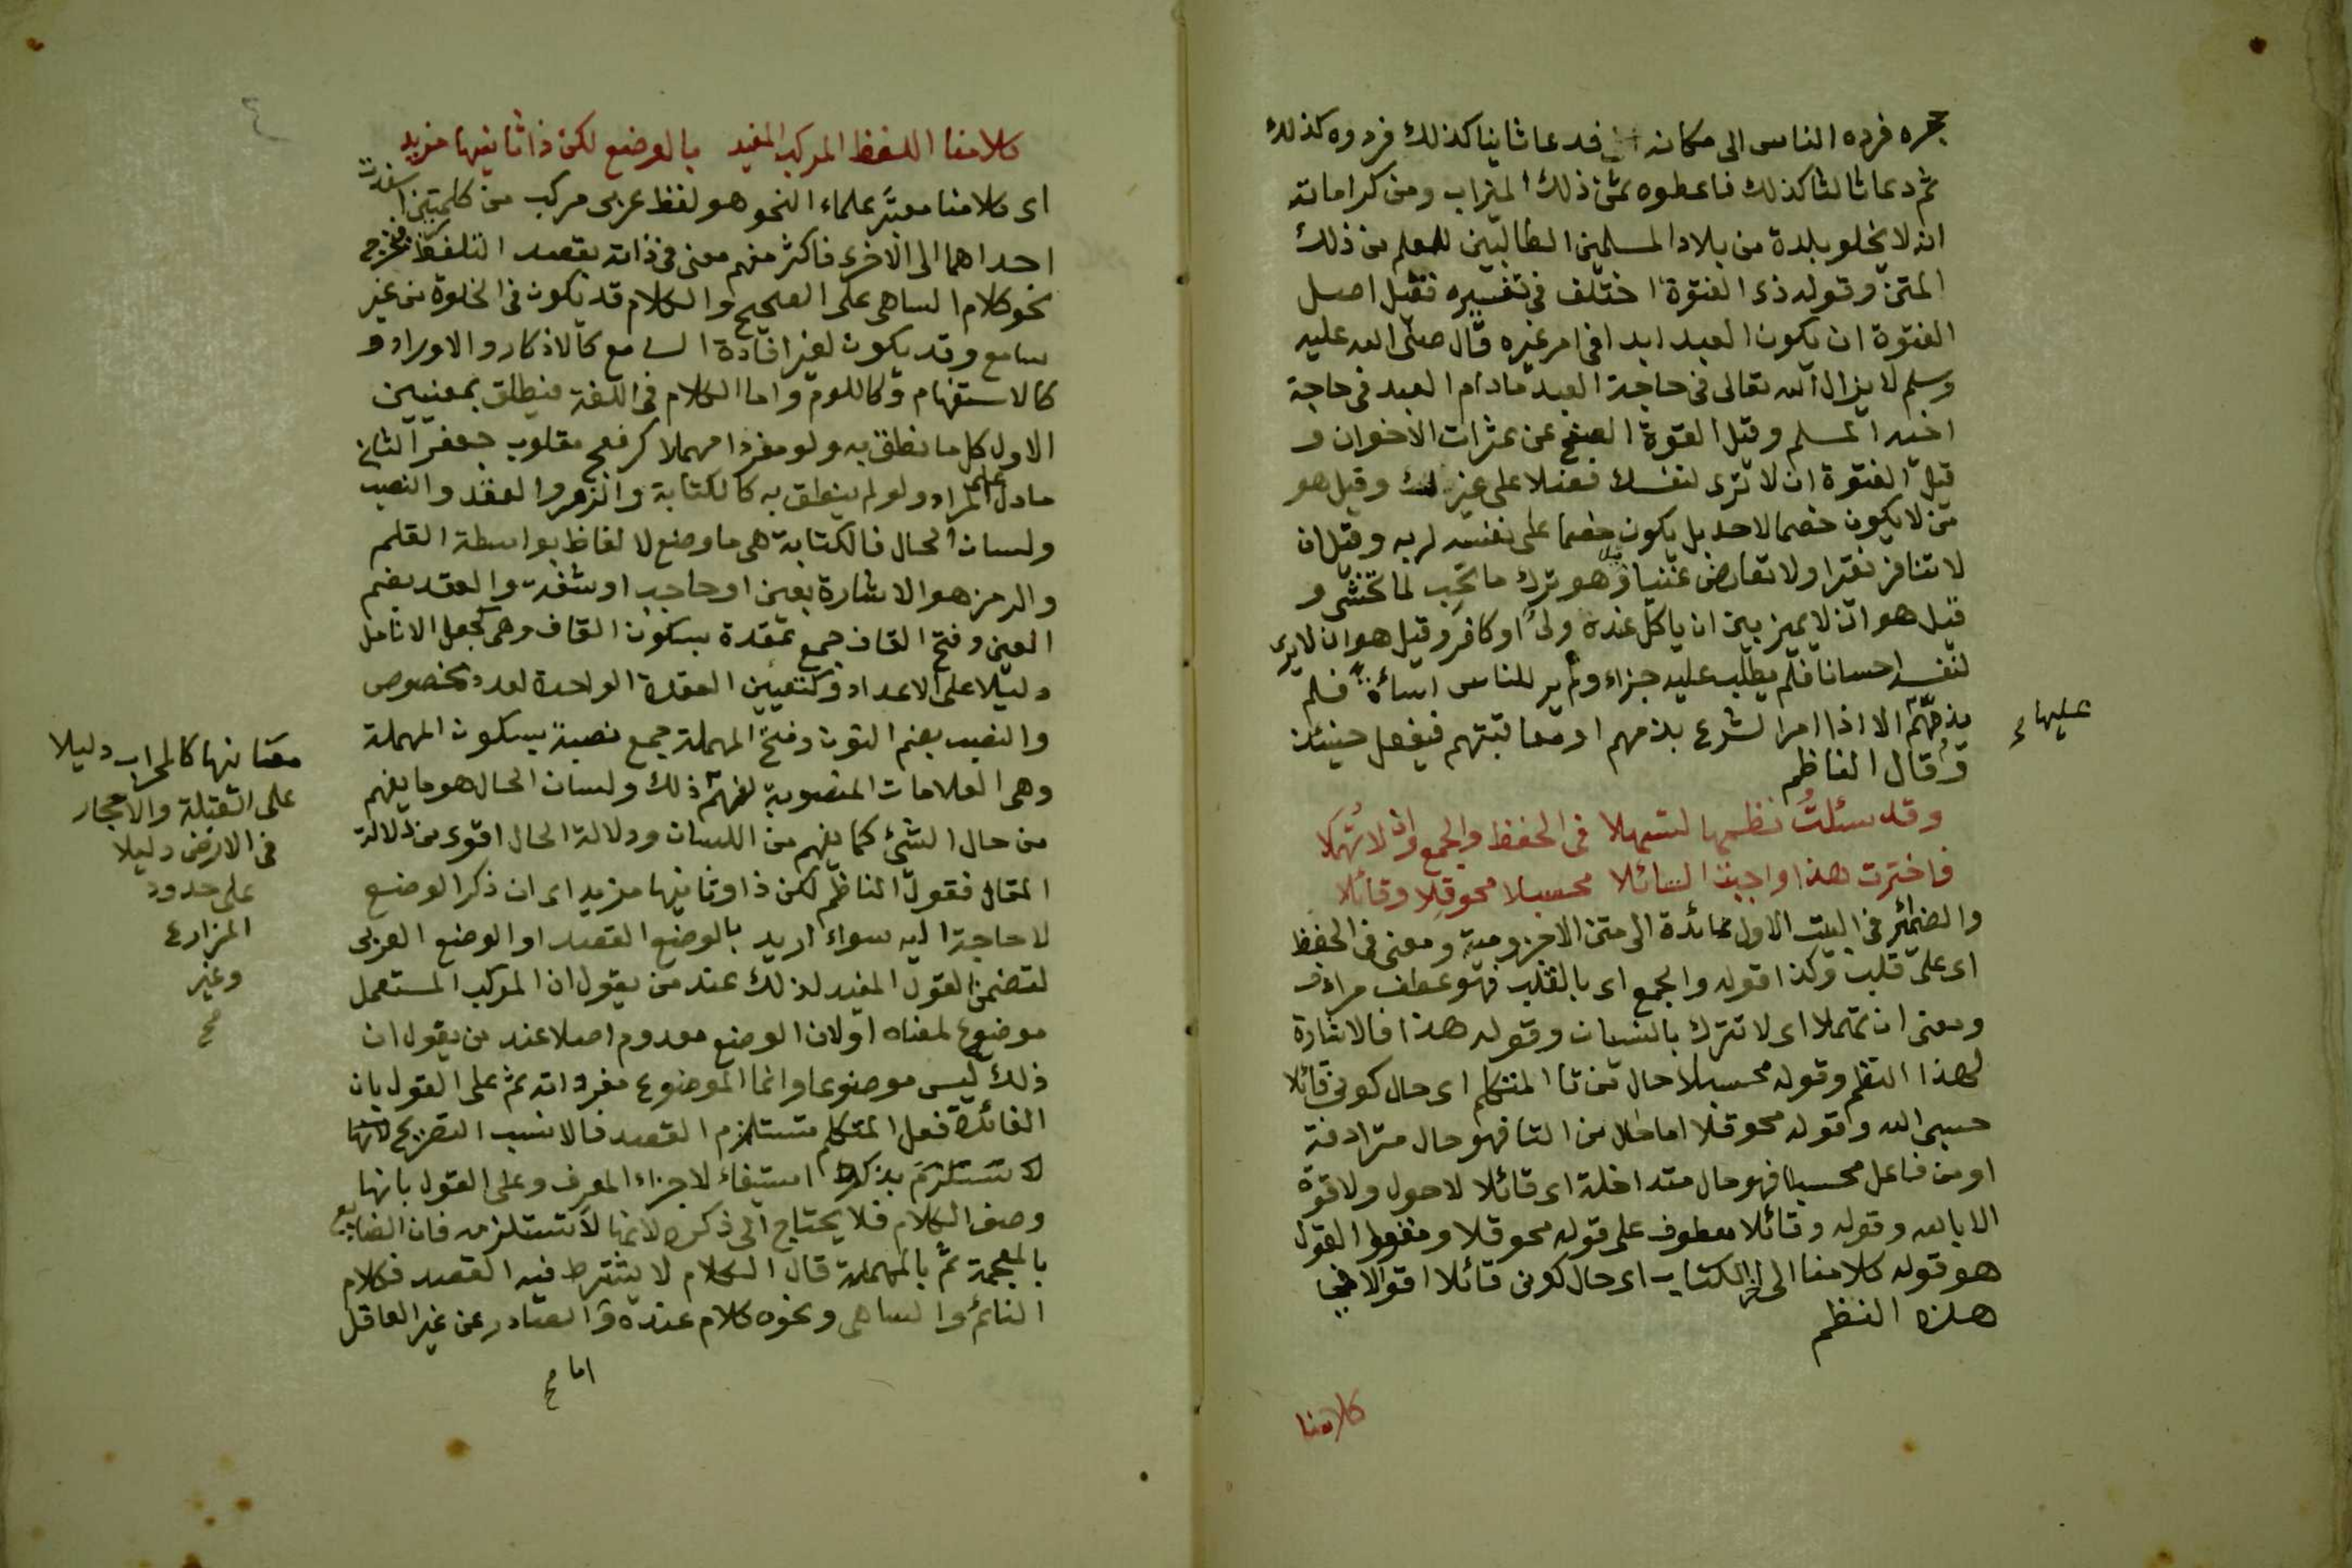 حجره فرده الناس الى مكانه فدعا ثانيا كذلك فردوه كذلك
ثم دعا ثالثا كذلك فاعطوه ثمن ذلك الميزاب ومن كراماته
انه لا يخلو بلدة من بلاد المسلمين الطالبين للعلم من ذلك
المتن وقوله ذى الفتوة اختلف فى تفسيره فقيل اصل
الفتوة ان يكون العبد ابدا فى امر غيره قال صلى الله عليه
وسلم لا يزال الله تعالى فى حاجة العبد ما دام العبد فى حاجة
اخيه المسلم وقيل الفتوة الصفح عن عثرات الاخوان و
قيل الفتوة ان لا ترى لنفسك فضلا على غيرك وقيل هو
من لا يكون خصما لاحد بل يكون خصما على نفسه لربه وقيل ان
لا تنافر فقيرا ولا تعارض غنيا وقيل هو ترك ما تحب لما تخشى و
قيل هو ان لا يميز بين ان ياكل عنده ولى او كافر وقيل هو ان لا يرى
لنفسه احسانا فلم يطلب عليه جزاء ولم ير للناس اساءة فلم
يذمهم الا اذا امر الشرع بذمهم او معاقبتهم فيفعل حينئذ
عليها
وقال الناظم
وقد سئلت نظمها لتسهلا فى الحفظ والجمع وان لا تهملا
فاخترت هذا واجبت السائلا محسبلا محوقلا وقائلا
والضمائر فى البيت الاول عائدة الى متن الاجرومية ومعنى فى الحفظ
اى على قلب وكذا قوله والجمع اى بالقلب فهو عطف مرادف
ومعنى ان تهملا اى لا تترك بالنسيان وقوله هذا فالاشارة
لهذا النظم وقوله محسبلا حال من تا المتكلم اى حال كونى قائلا
حسبى الله وقوله محوقلا اما حال من التا فهو حال مترادفة
او من فاعل محسبلا فهو حال متداخلة اى قائلا لا حول ولا قوة
الا بالله وقوله وقائلا معطوف على قوله محوقلا ومفعول القول
هو قوله كلامنا الى اخر الكتاب اى حال كونى قائلا اقوالا فى
هذه النظم
كلامنا
٤
كلامنا اللفظ المركب المفيد بالوضع لكن ذا ثانيها مزيد
اى كلامنا معشر علماء النحو هو لفظ عربى مركب من كلمتين اسندت
احداهما الى الاخرى فاكثر مفهم معنى فى ذاته بقصد التلفظ فخرج
نحو كلام الساهى على الصحيح والكلام قد يكون فى الخلوة من غير
سامع وقد يكون لغير افادة السامع كالاذكار والاوراد و
كالاستفهام وكاللوم واما الكلام فى اللغة فيطلق بمعنيين
الاول كل ما نطق به ولو مفردا مهملا كرفعج مقلوب جعفر الثانى
ما دل على المراد ولو لم ينطق به كالكتابة والرمز والعقد والنصب
ولسان الحال فالكتابة هى ما وضع لالفاظ بواسطة القلم
والرمز هو الاشارة بعين او حاجب او شفة والعقد بضم
العين وفتح القاف جمع عقدة بسكون القاف وهى كجعل الانامل
دليلا على الاعداد وكتعيين العقدة الواحدة لعدد مخصوص
والنصب بضم النون وفتح المهملة جمع نصبة بسكون المهملة
وهى العلامات المنصوبة لفهم ذلك ولسان الحال هو ما يفهم
من حال الشئ كما يفهم من اللسان ودلالة الحال اقوى من دلالة
المقال فقول الناظم لكن ذا وثانيها مزيد اى ان ذكر الوضع
لا حاجة اليه سواء اريد بالوضع القصد او الوضع العربى
لتضمن القول المفيد لذلك عند من يقول ان المركب المستعمل
موضوع لمعناه او لان الوضع معدوم اصلا عند من يقول ان
ذلك ليس موضوعا وانما الموضوع مفرداته ثم على القول بان
الفائدة فعل المتكلم تستلزم القصد فالانسب التصريح
لا تستلزم بذكرها استيفاء لاجزاء المعرف وعلى القول بانها
وصف الكلام فلا يحتاج الى ذكره لانها لا تستلزمه فان الضايع
بالمعجمة ثم بالمهملة قال الكلام لا يشترط فيه القصد فكلام
النائم والساهى ونحوه كلام عنده والصادر عن غير العاقل
اما
كالمحراب دليلا
على القبلة والاحجار
فى الارض دليلا
على حدود
المزارع
وغير
صح